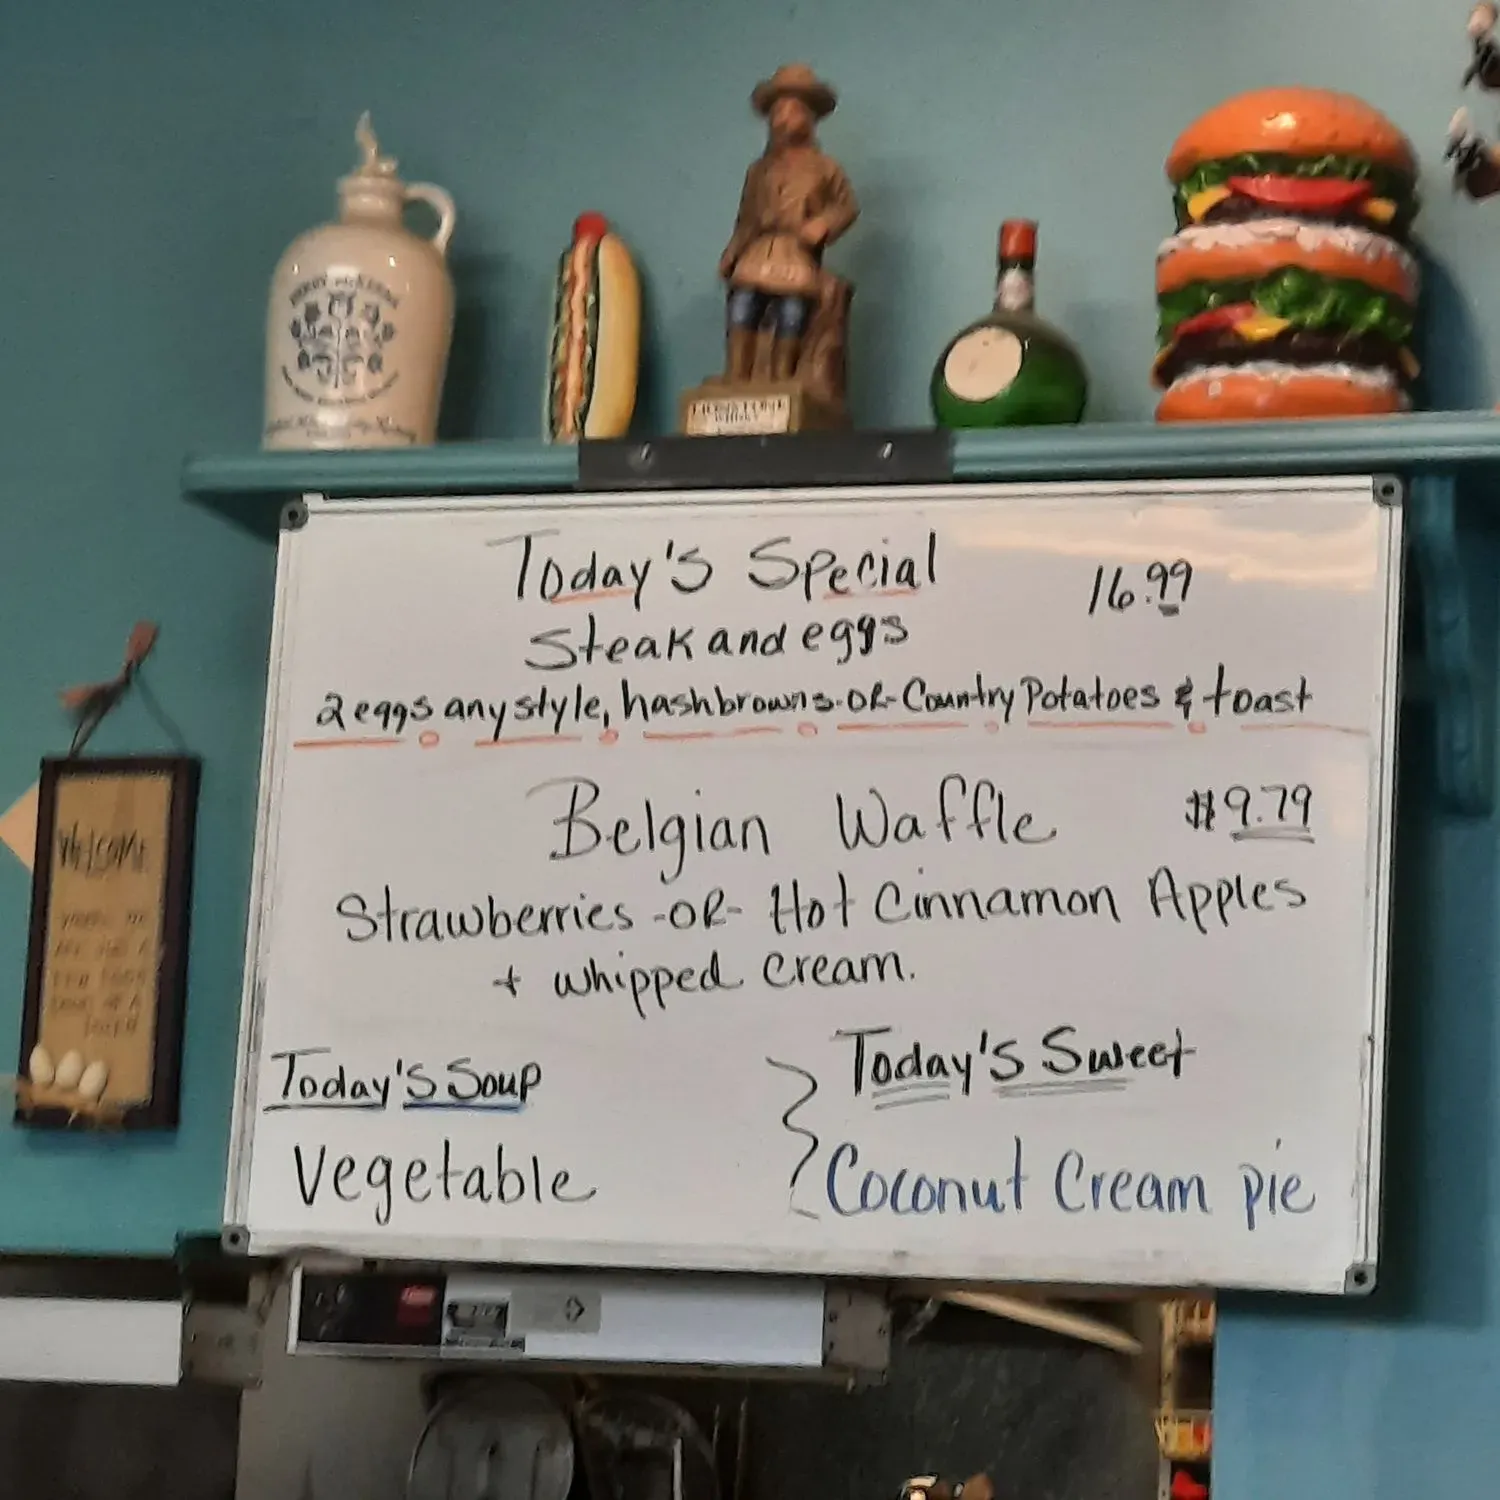 HENRY McKENNA
LIONSTONE
WHISKY
Today's Special
16.99
Steak and eggs
2 eggs any style, hashbrowns -OR- Country Potatoes & toast
Belgian Waffle
$9.79
Strawberries -OR- Hot Cinnamon Apples
+ whipped cream.
Today's Soup
Vegetable
Today's Sweet
Coconut Cream pie
WELCOME